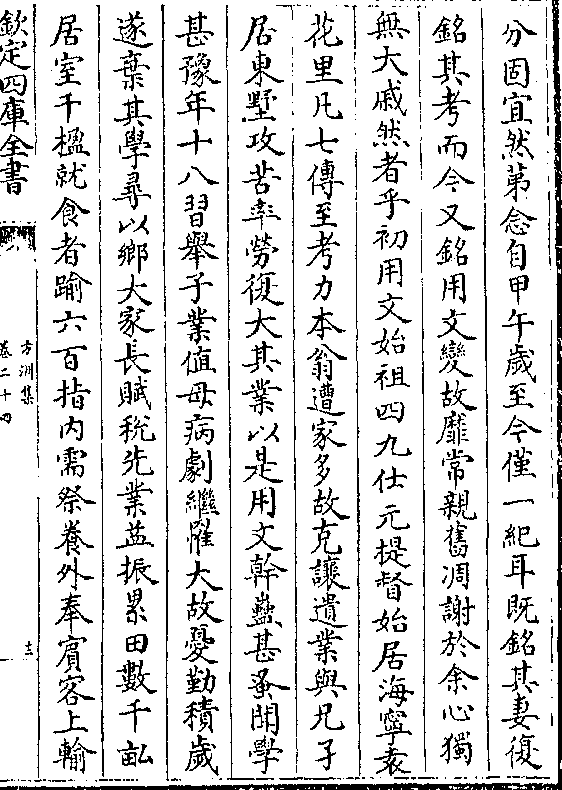 分固宜然第念自甲午歲至今僅一紀耳既銘其妻復
銘其考而今又銘用文變故靡常親舊凋謝於余心獨
無大戚然者乎初用文始祖四九仕元提督始居海寧袁
花里凡七傳至考力本翁遭家多故克讓遺業與兄子
居東墅攻苦幸勞復大其業以是用文幹蠱甚蚤開學
甚豫年十八習舉子業值母病劇繼罹大故憂勤積歲
遂棄其學尋以鄉大家長賦稅先業益振累田數千畝
居室千楹就食者踰六百指内需祭養外奉賔客上輸
欽定四庫全書
方洲集
卷二十四
十三